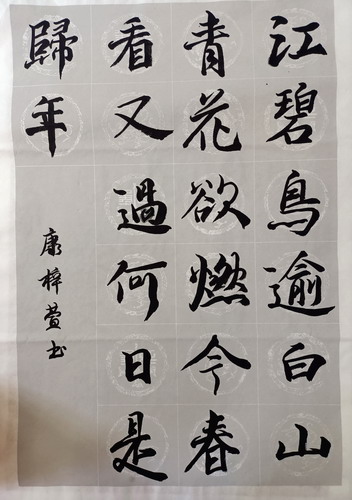 江碧鳥逾白山
青花欲燃今春
看又過何日是
歸年
康梓萱书